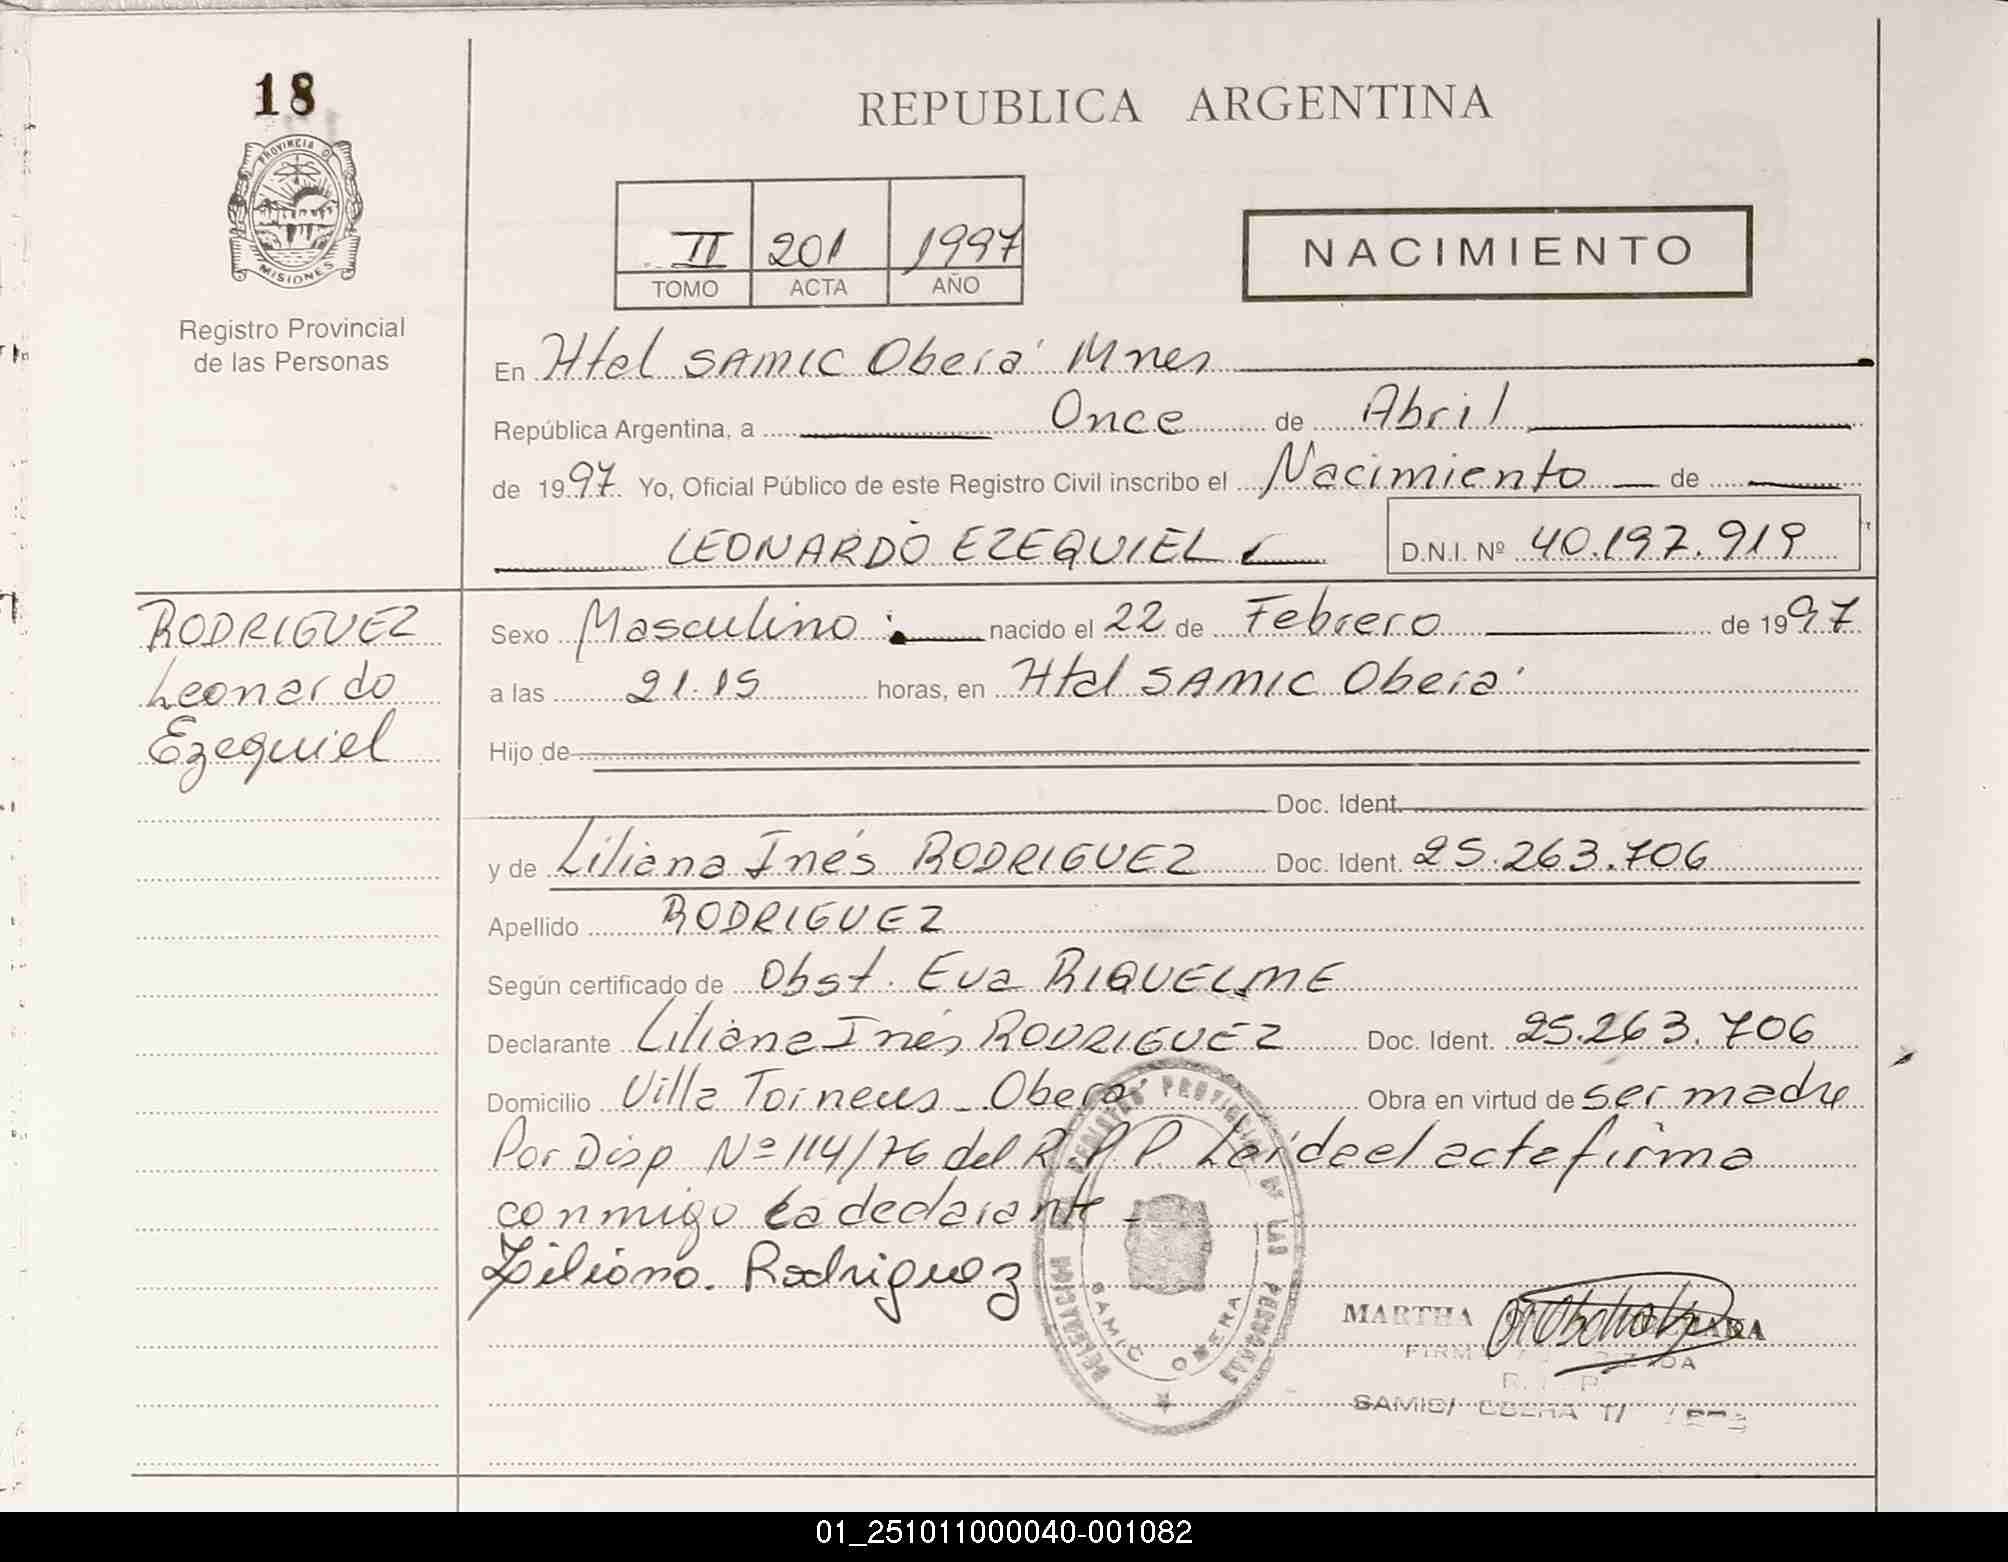 18
REPUBLICA ARGENTINA
PROVINCIA D
MISIONES
Registro Provincial
de las Personas
II 201 1997
TOMO ACTA AÑO
NACIMIENTO
En Htal SAMIC Oberá Mnes
República Argentina, a Once de Abril
de 1997 Yo, Oficial Público de este Registro Civil inscribo el Nacimiento de
LEONARDO EZEQUIEL D.N.I. Nº 40.197.919
RODRIGUEZ
Leonardo
Ezequiel
Sexo Masculino nacido el 22 de Febrero de 1997
a las 21.15 horas, en Htal SAMIC Oberá
Hijo de
Doc. Ident.
y de Liliana Inés RODRIGUEZ Doc. Ident. 25.263.706
Apellido RODRIGUEZ
Según certificado de Obst. Eva RIQUELME
Declarante Liliana Inés RODRIGUEZ Doc. Ident. 25.263.706
Domicilio Villa Torneus - Oberá Obra en virtud de ser madre
Por Disp Nº 114/76 del R.P.P. Leída el acta firma
conmigo la declarante -
Liliana. Rodriguez
REGISTRO PROVINCIAL DE LAS PERSONAS
SAMIC OBERA
MARTHA
SAMIC/ OBERA
01_251011000040-001082